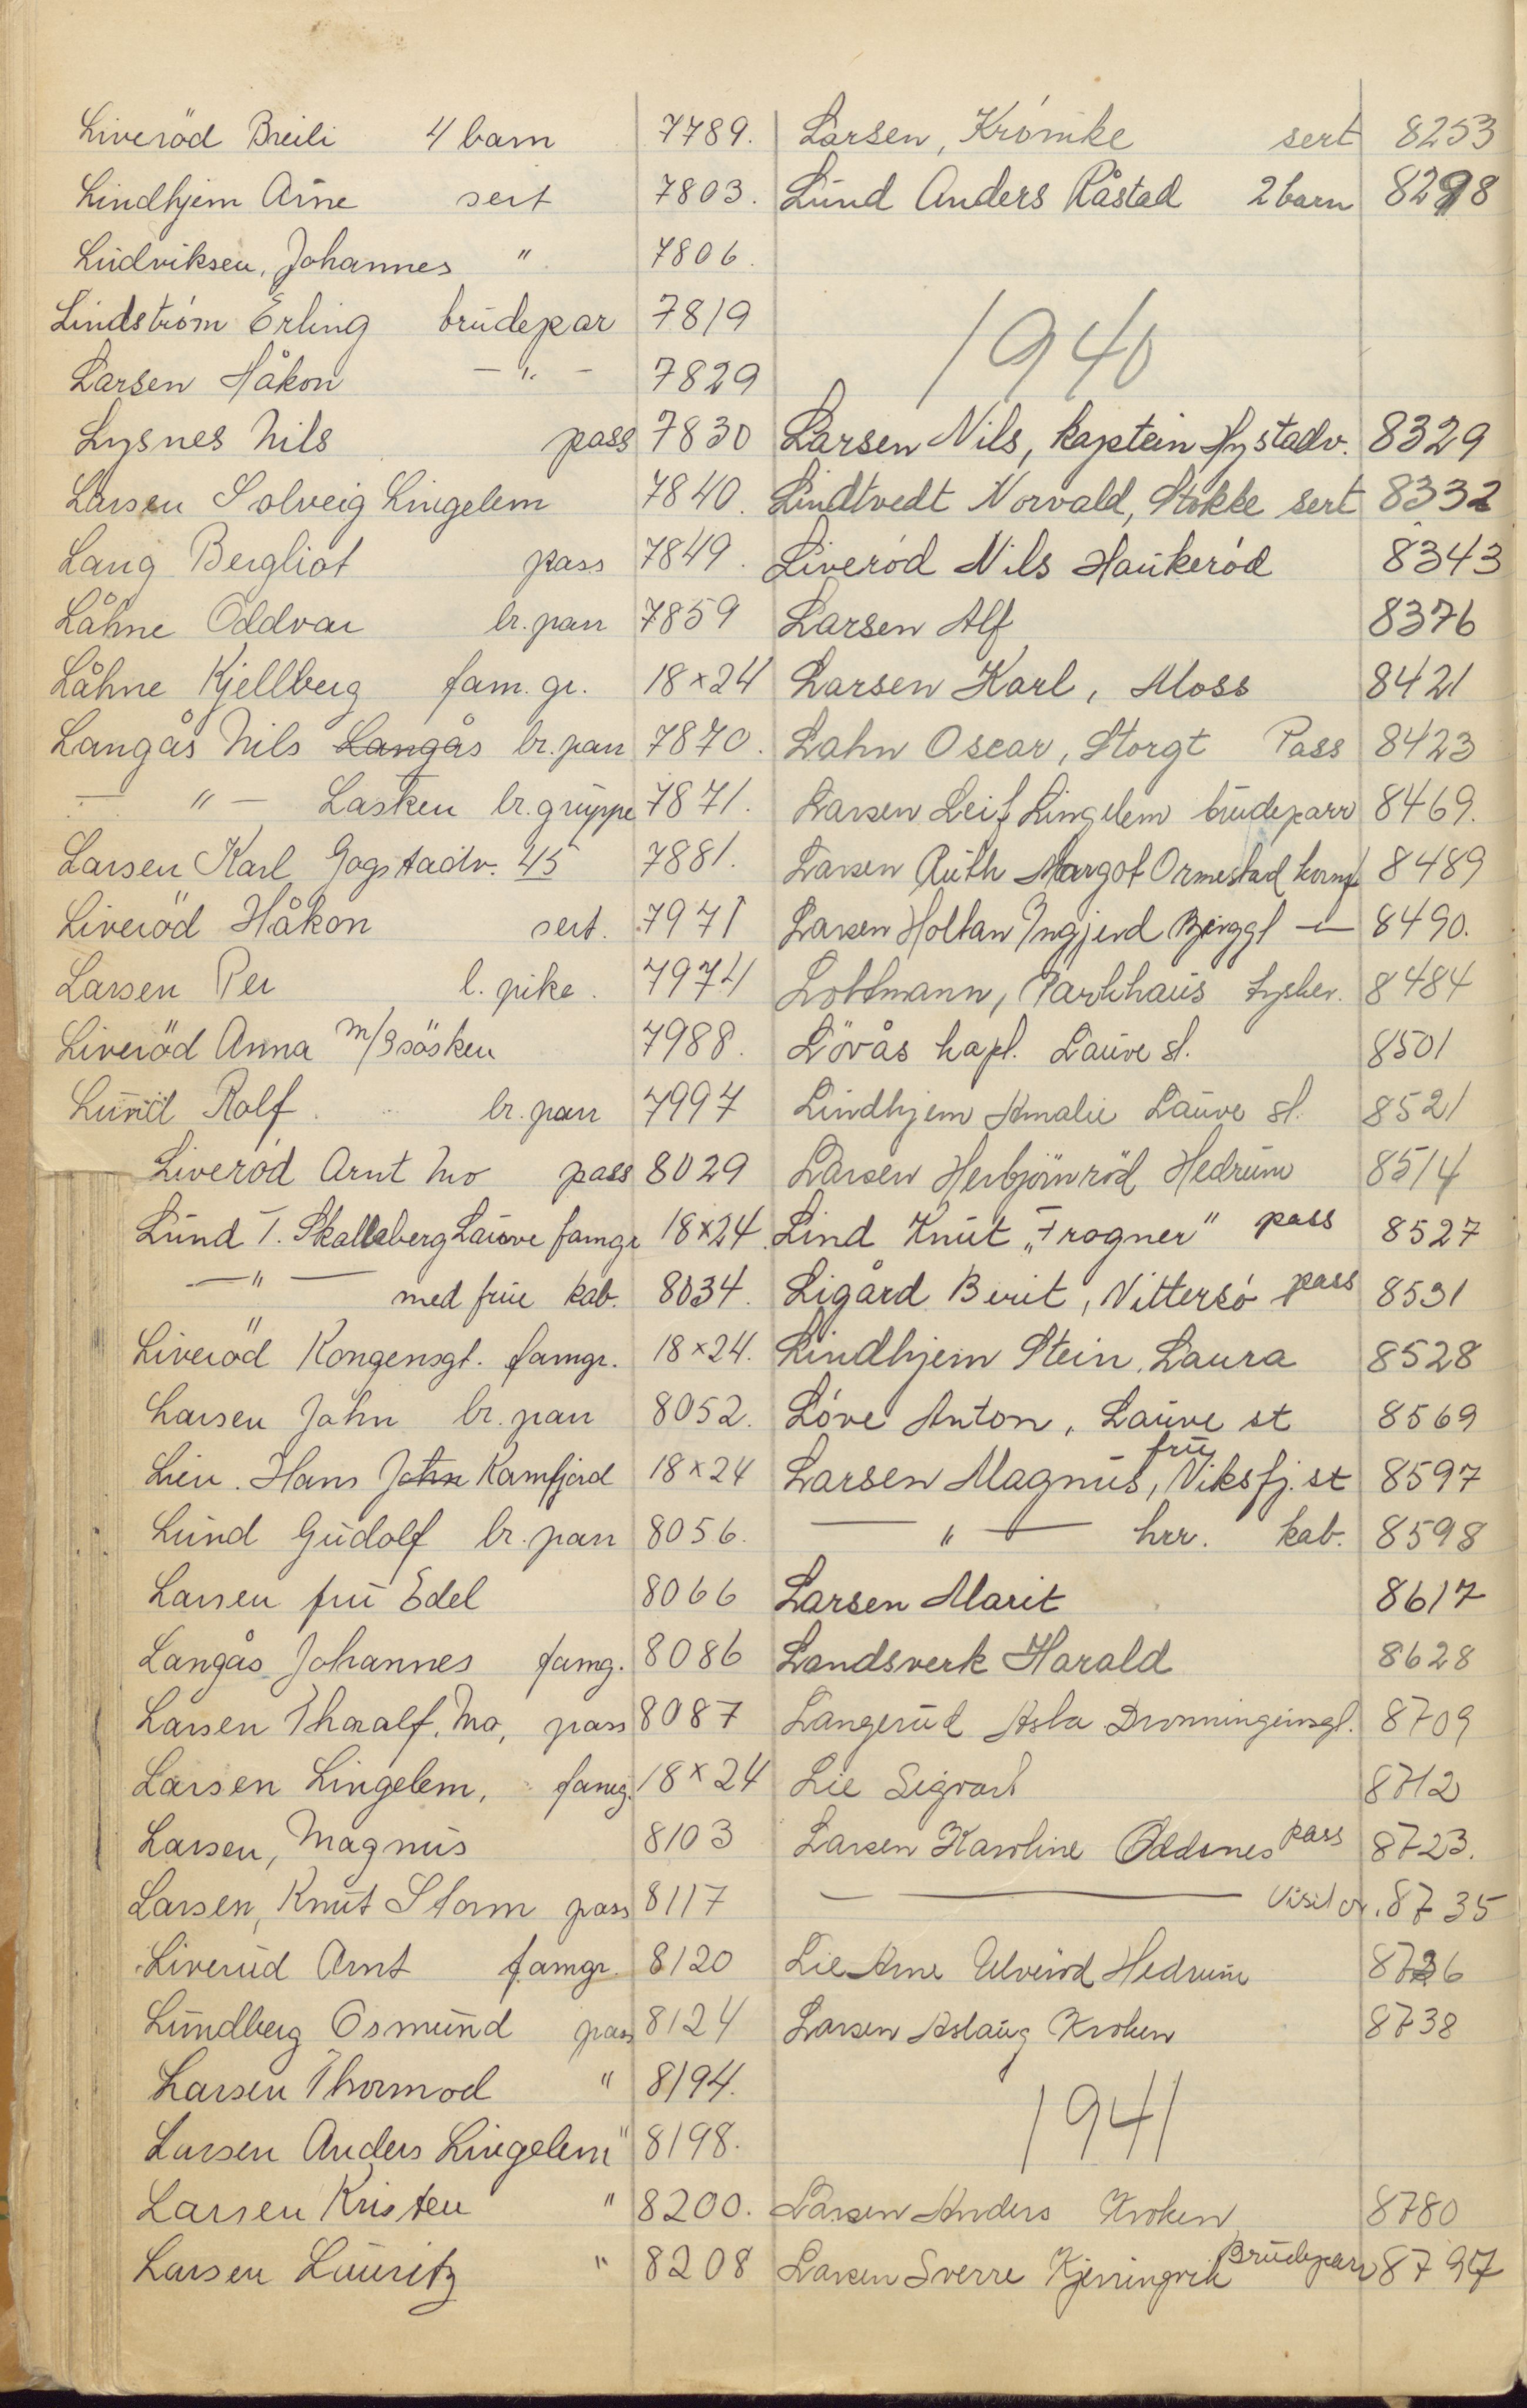 Liveröd Breili 4 barn 7789.
Lindhjem Arne sert 7803.
Ludviksen, Johannes " 7806.
Lindström Erling brudepar 7819
Larsen Håkon — " — 7829
Lysnes Nils pass 7830
Larsen Solveig Lingelem 7840.
Lang Bergliot pass 7849.
Låhne Oddvar br.parr 7859
Låhne Kjellberg fam. gr. 18x24
Langås Nils Langås br.parr 7870.
— " — Lasken br.gruppe 7871.
Larsen Karl Gogstadv. 45 7881.
Liveröd Håkon sert. 7971
Larsen Per l. pike. 7974
Liveröd Anna m/3 sösken 7988.
Lund Rolf br. parr 7997
Liveröd Arnt Mo pass 8029
Lund T. Skallaberg Lauve famgr 18x24
— " — med frue kab. 8034.
Liveröd Kongensgt. famgr. 18x24.
Larsen John br. parr 8052.
Lien. Hans John Kamfjord 18x24
Lund Gudolf br. parr 8056.
Larsen fru Edel 8066
Langås Johannes famg. 8086
Larsen Thoralf, Mo, pass 8087
Larsen Lingelem, famg. 18x24
Larsen, Magnus 8103
Larsen, Knut Storm pass 8117
Liverud Arnt famgr. 8120
Lundberg Osmund pass 8124
Larsen Thormod " 8194.
Larsen Anders Lingelem " 8198.
Larsen Kristen " 8200.
Larsen Lauritz " 8208
Larsen, Krömke sert 8253
Lund Anders Råstad 2 barn 8298
1940
Larsen Nils, kaptein Nystadv. 8329
Lindtvedt Norvald, Stokke sert 8332
Liveröd Nils Haukeröd 8343
Larsen Alf 8376
Larsen Karl, Moss 8421
Lahn Oscar, Storgt Pass 8423
Larsen Leif Lingelem brudeparr 8469.
Larsen Ruth Margot Ormestad konf 8489
Larsen Holtan Ingjerd Bjerggt — " — 8490.
Lottmann, Parkhaus tysker. 8484
Lövås kapl. Lauve st. 8501
Lindhjem Amalie Lauve st. 8521
Larsen Herbjörnröd Hedrum 8514
Lind Knut „Frogner" pass 8527
Ligård Berit, Vittersö pass 8531
Lindhjem Stein, Laura 8528
Löve Anton, Lauve st 8569
Larsen Magnus, fru Viksfj. st 8597
— " — hrr. kab. 8598
Larsen Marit 8617
Landsverk Harald 8628
Langerud Asta Dronningensgt. 8709
Lie Sigvart 8712
Larsen Karoline Oddsnes pass 8723.
— — Visit or. 8735
Lie Arne Ulveröd Hedrum 8736
Larsen Aslaug Kroken 8738
1941
Larsen Anders Kroken 8780
Larsen Sverre Kjerringvik Brudeparr 8797